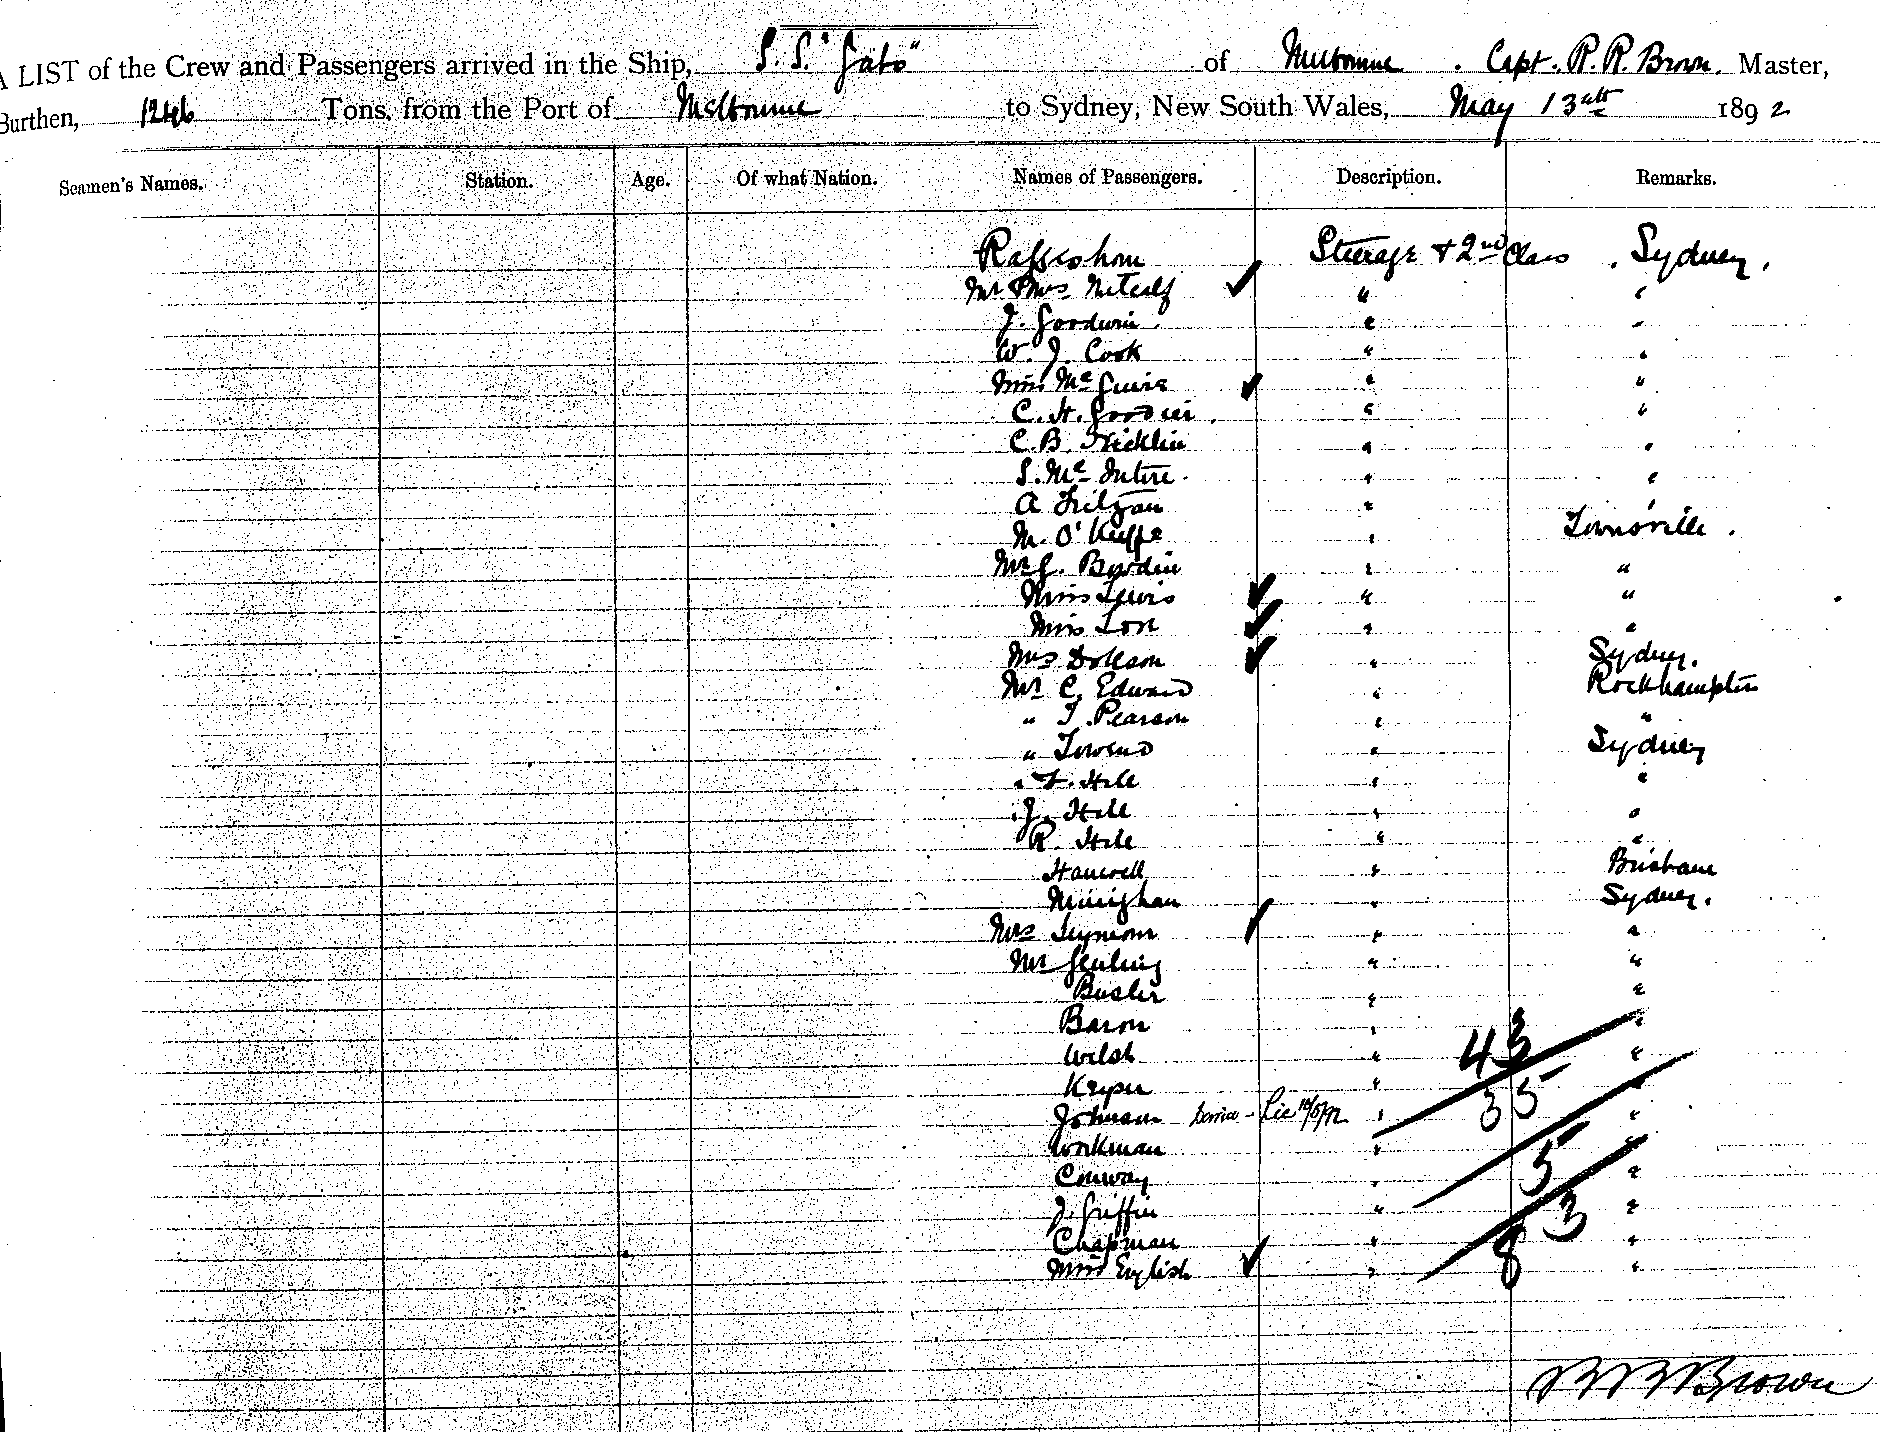 A LIST of the Crew and Passengers arrived in the Ship, S.S. "Gabo" of Melbourne . Capt. R. R. Brown. Master,
Burthen, 1246 Tons, from the Port of Melbourne to Sydney, New South Wales, May 13th 1892
Seamen's Names. Station. Age. Of what Nation. Names of Passengers. Description. Remarks.
Steerage & 2nd Class . Sydney .
Mr & Mrs Metcalf ✓ " "
J. Goodwin . " "
W. J. Cook " "
Miss McGuire ✓ " "
C. H. " "
C. B. " "
S. McIntire . " "
A " "
M. O'Keeffe " Townsville .
Mr G. " "
Miss Lewis ✓ " "
Miss ✓ " "
Mrs ✓ " Sydney.
Mr C. Edward " Rockhampton
" T. Pearson " "
" Townend " Sydney
" F. Hill " "
J. Hill " "
R. Hill " "
" Brisbane
" Sydney.
Mrs Seymour ✓ " "
Mr " "
" "
Baron " "
Welsh " 43 "
" "
Johnson " 35 "
Workman " "
Conway " 5 "
J. Griffin " 3 "
Chapman " "
Miss English ✓ " 8 "
R R Brown